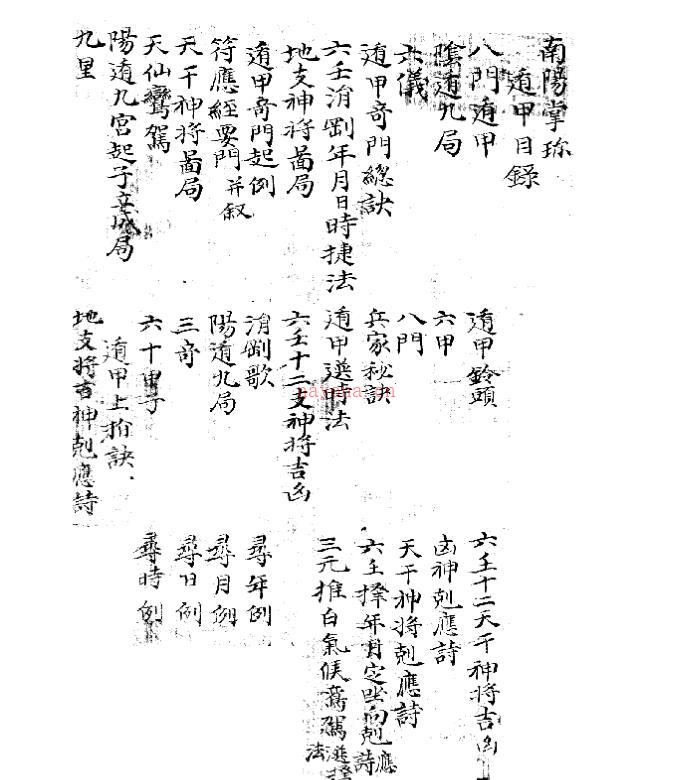 南陽掌珎
遁甲目錄
八門遁甲
陰遁九局
六儀
遁甲奇門總訣
六壬涓劚年月日時捷法
地支神将啚局
遁甲奇門起例
符應經要門 并叙
天干神将啚局
天仙鸞駕
陽遁九宫起子立成局
九里
遁甲鈴頭
六甲
八門
兵家秘訣
遁甲選時法
六壬十二支神将吉凶
涓劚歌
陽遁九局
三奇
六十甲子
遁甲上拍訣
地支将吉神剋應詩
六壬十二天干神将吉凶
凶神剋應詩
天干神将剋應詩
六壬擇年月定坐向剋應詩
三元推白氣候鸞駕選擇法
尋年例
尋月例
尋日例
尋時例